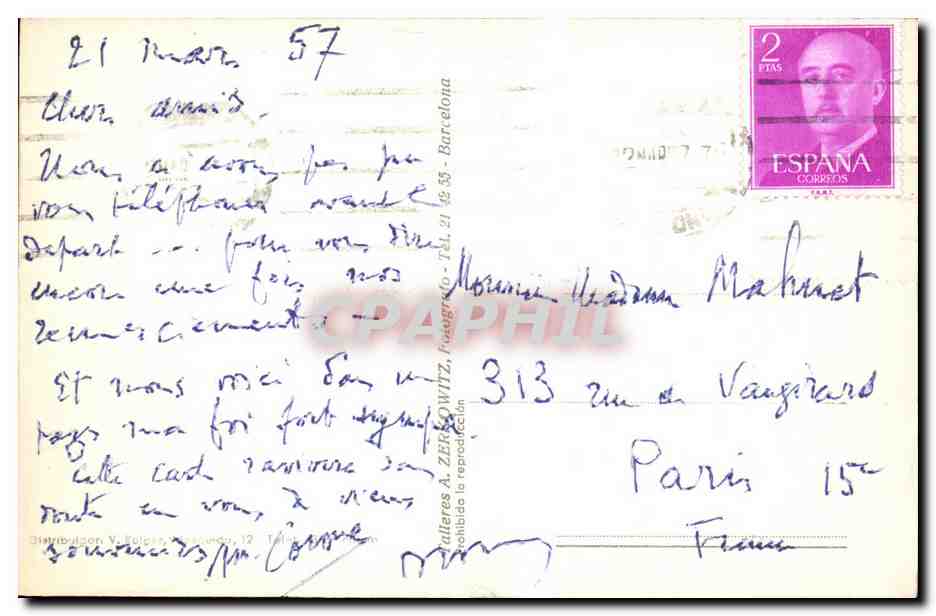 21 mars 57
Chers amis,
Nous n'avons pas pu
vous téléphoner avant le
départ ... pour vous dire
encore une fois nos
remerciements –
Et nous voici dans un
pays ma foi fort sympa.
Cette carte ravivera sans
doute en vous de vieux
souvenirs
Talleres A. ZERKOWITZ, Fotógrafo - Tel. 21 42 55 - Barcelona
prohibida la reproducción
2
PTAS
ESPAÑA
CORREOS
F.N.M.T.
Monsieur Madame Mahuet
313 rue de Vaugirard
Paris 15e
France
CPAPHIL